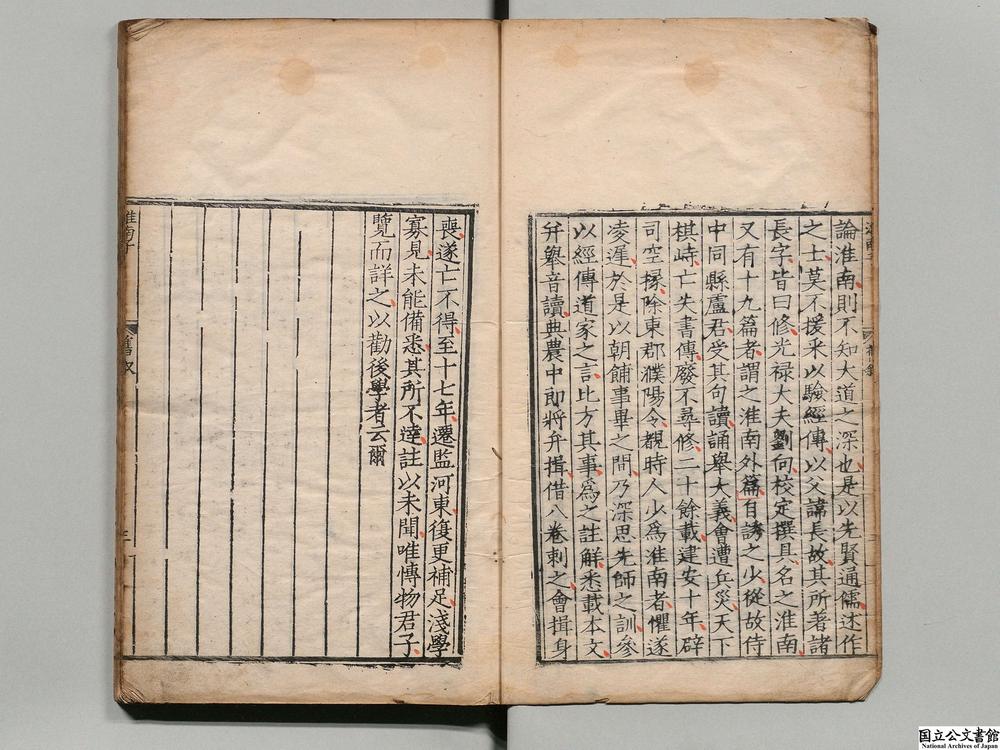 論淮南則不知大道之深也是以先賢通儒述作
之士莫不援采以驗經傳以父諱長故其所著諸
長字皆曰修光禄大夫劉向校定撰具名之淮南
又有十九篇者謂之淮南外篇自誘之少從故侍
中同縣盧君受其句讀誦舉大義會遭兵災天下
棋峙亡失書傳廢不尋修二十餘載建安十年辟
司空掾除東郡濮陽令覩時人少爲淮南者懼遂
凌遲於是以朝餔事畢之間乃深思先師之訓參
以經傳道家之言比方其事爲之註解悉載本文
并舉音讀典農中郎將弁揖借八卷刺之會揖身
喪遂亡不得至十七年遷監河東復更補足淺學
寡見未能備悉其所不達註以未聞唯博物君子
覽而詳之以勸後學者云爾
淮南子
舊叙
国立公文書館
National Archives of Japan